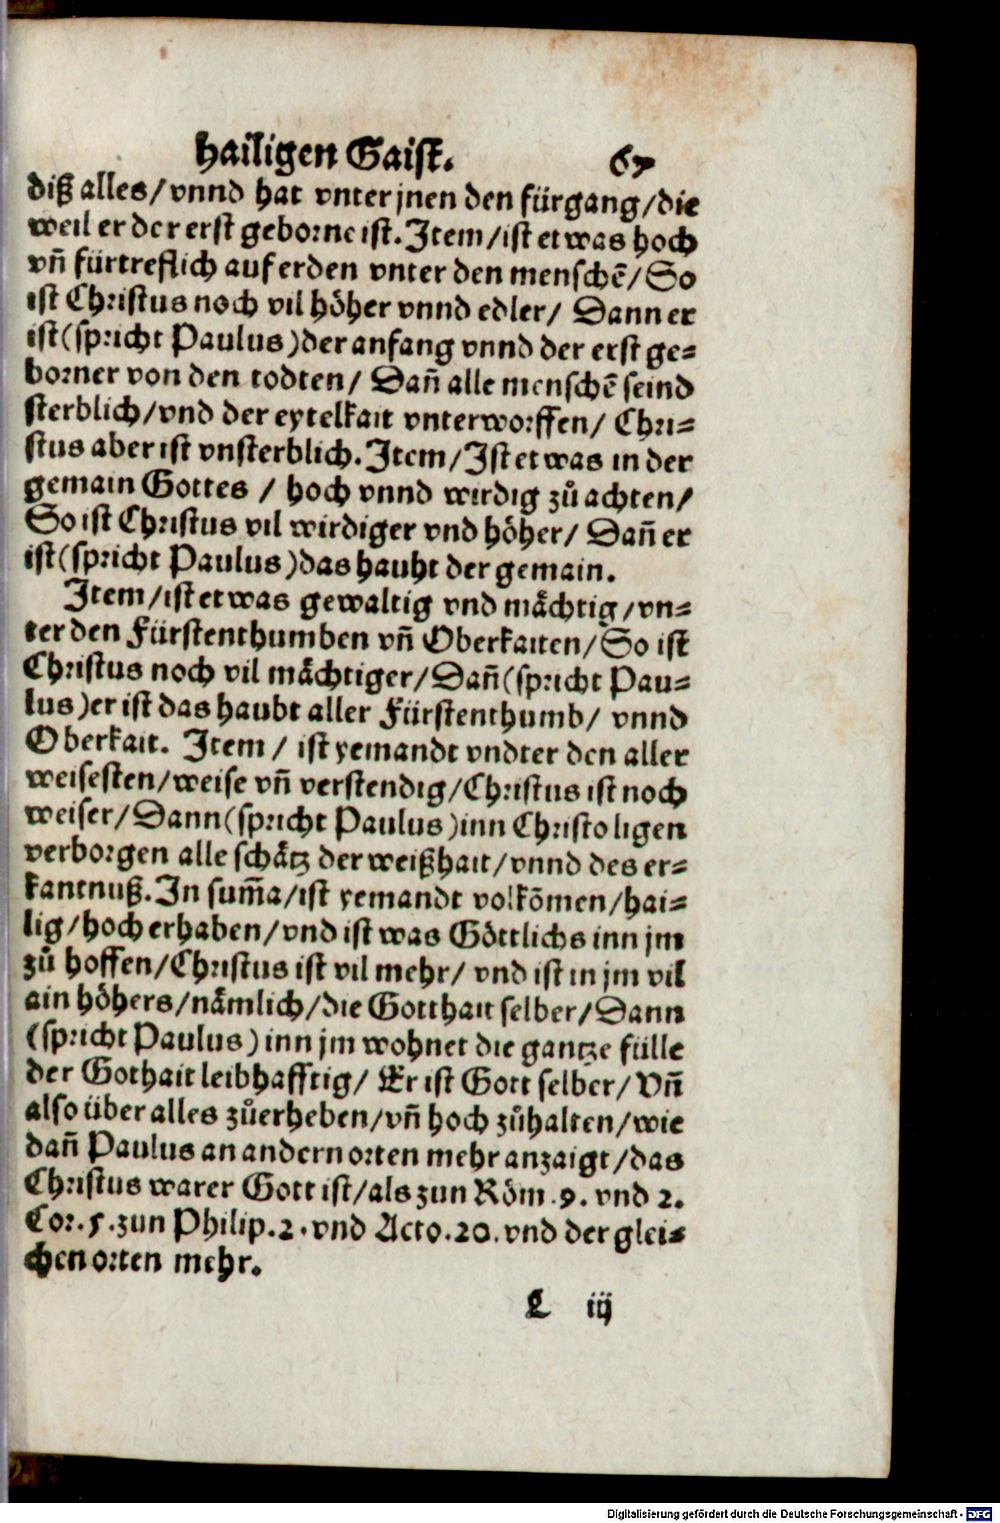 hailigen Gaist. 67
diß alles/vnnd hat vnter jnen den fürgang/die
weil er der erst geborne ist. Item/ist etwas hoch
vñ fürtreflich auf erden vnter den menschẽ/So
ist Christus noch vil höher vnnd edler/ Dann er
ist(spricht Paulus)der anfang vnnd der erst ge=
borner von den todten/ Dañ alle menschẽ seind
sterblich/vnd der eytelkait vnterworffen/ Chri=
stus aber ist vnsterblich. Item/Ist etwas in der
gemain Gottes / hoch vnnd wirdig zů achten/
So ist Christus vil wirdiger vnd höher/ Dañ er
ist(spricht Paulus)das hauht der gemain.
Item/ist etwas gewaltig vnd mächtig/vn=
ter den Fürstenthumben vñ Oberkaiten/So ist
Christus noch vil mächtiger/Dañ(spricht Pau=
lus)er ist das haubt aller Fürstenthumb/ vnnd
Oberkait. Item/ ist yemandt vndter den aller
weisesten/weise vñ verstendig/Christus ist noch
weiser/Dann(spricht Paulus)inn Christo ligen
verborgen alle schätz der weißhait/vnnd des er=
kantnuß. In sum̃a/ist yemandt volkõmen/hai=
lig/hoch erhaben/vnd ist was Göttlichs inn jm
zů hoffen/Christus ist vil mehr/ vnd ist in jm vil
ain höhers/nämlich/die Gotthait selber/Dann
(spricht Paulus)inn jm wohnet die gantze fülle
der Gothait leibhafftig/ Er ist Gott selber/Vñ
also über alles zůerheben/vñ hoch zůhalten/wie
dañ Paulus an andern orten mehr anzaigt/das
Christus warer Gott ist/als zun Röm.9. vnd 2.
Cor.5.zun Philip.2.vnd Acto.20.vnd der glei=
chen orten mehr.
L iij
Digitalisierung gefördert durch die Deutsche Forschungsgemeinschaft - DFG